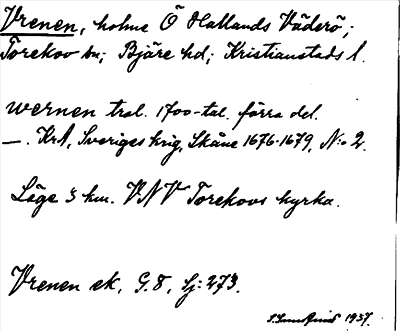 Vrenen, holme Ö Hallands Väderö;
Torekov sn; Bjäre hd; Kristianstads l.
wernen trol. 1700-tal. förra del.
—. KrA, Sveriges krig, Skåne 1676-1679, N:o 2.
Läge 3 km. VNV Torekovs kyrka.
Vrenen ek, G.8, Sj:273.
1937.